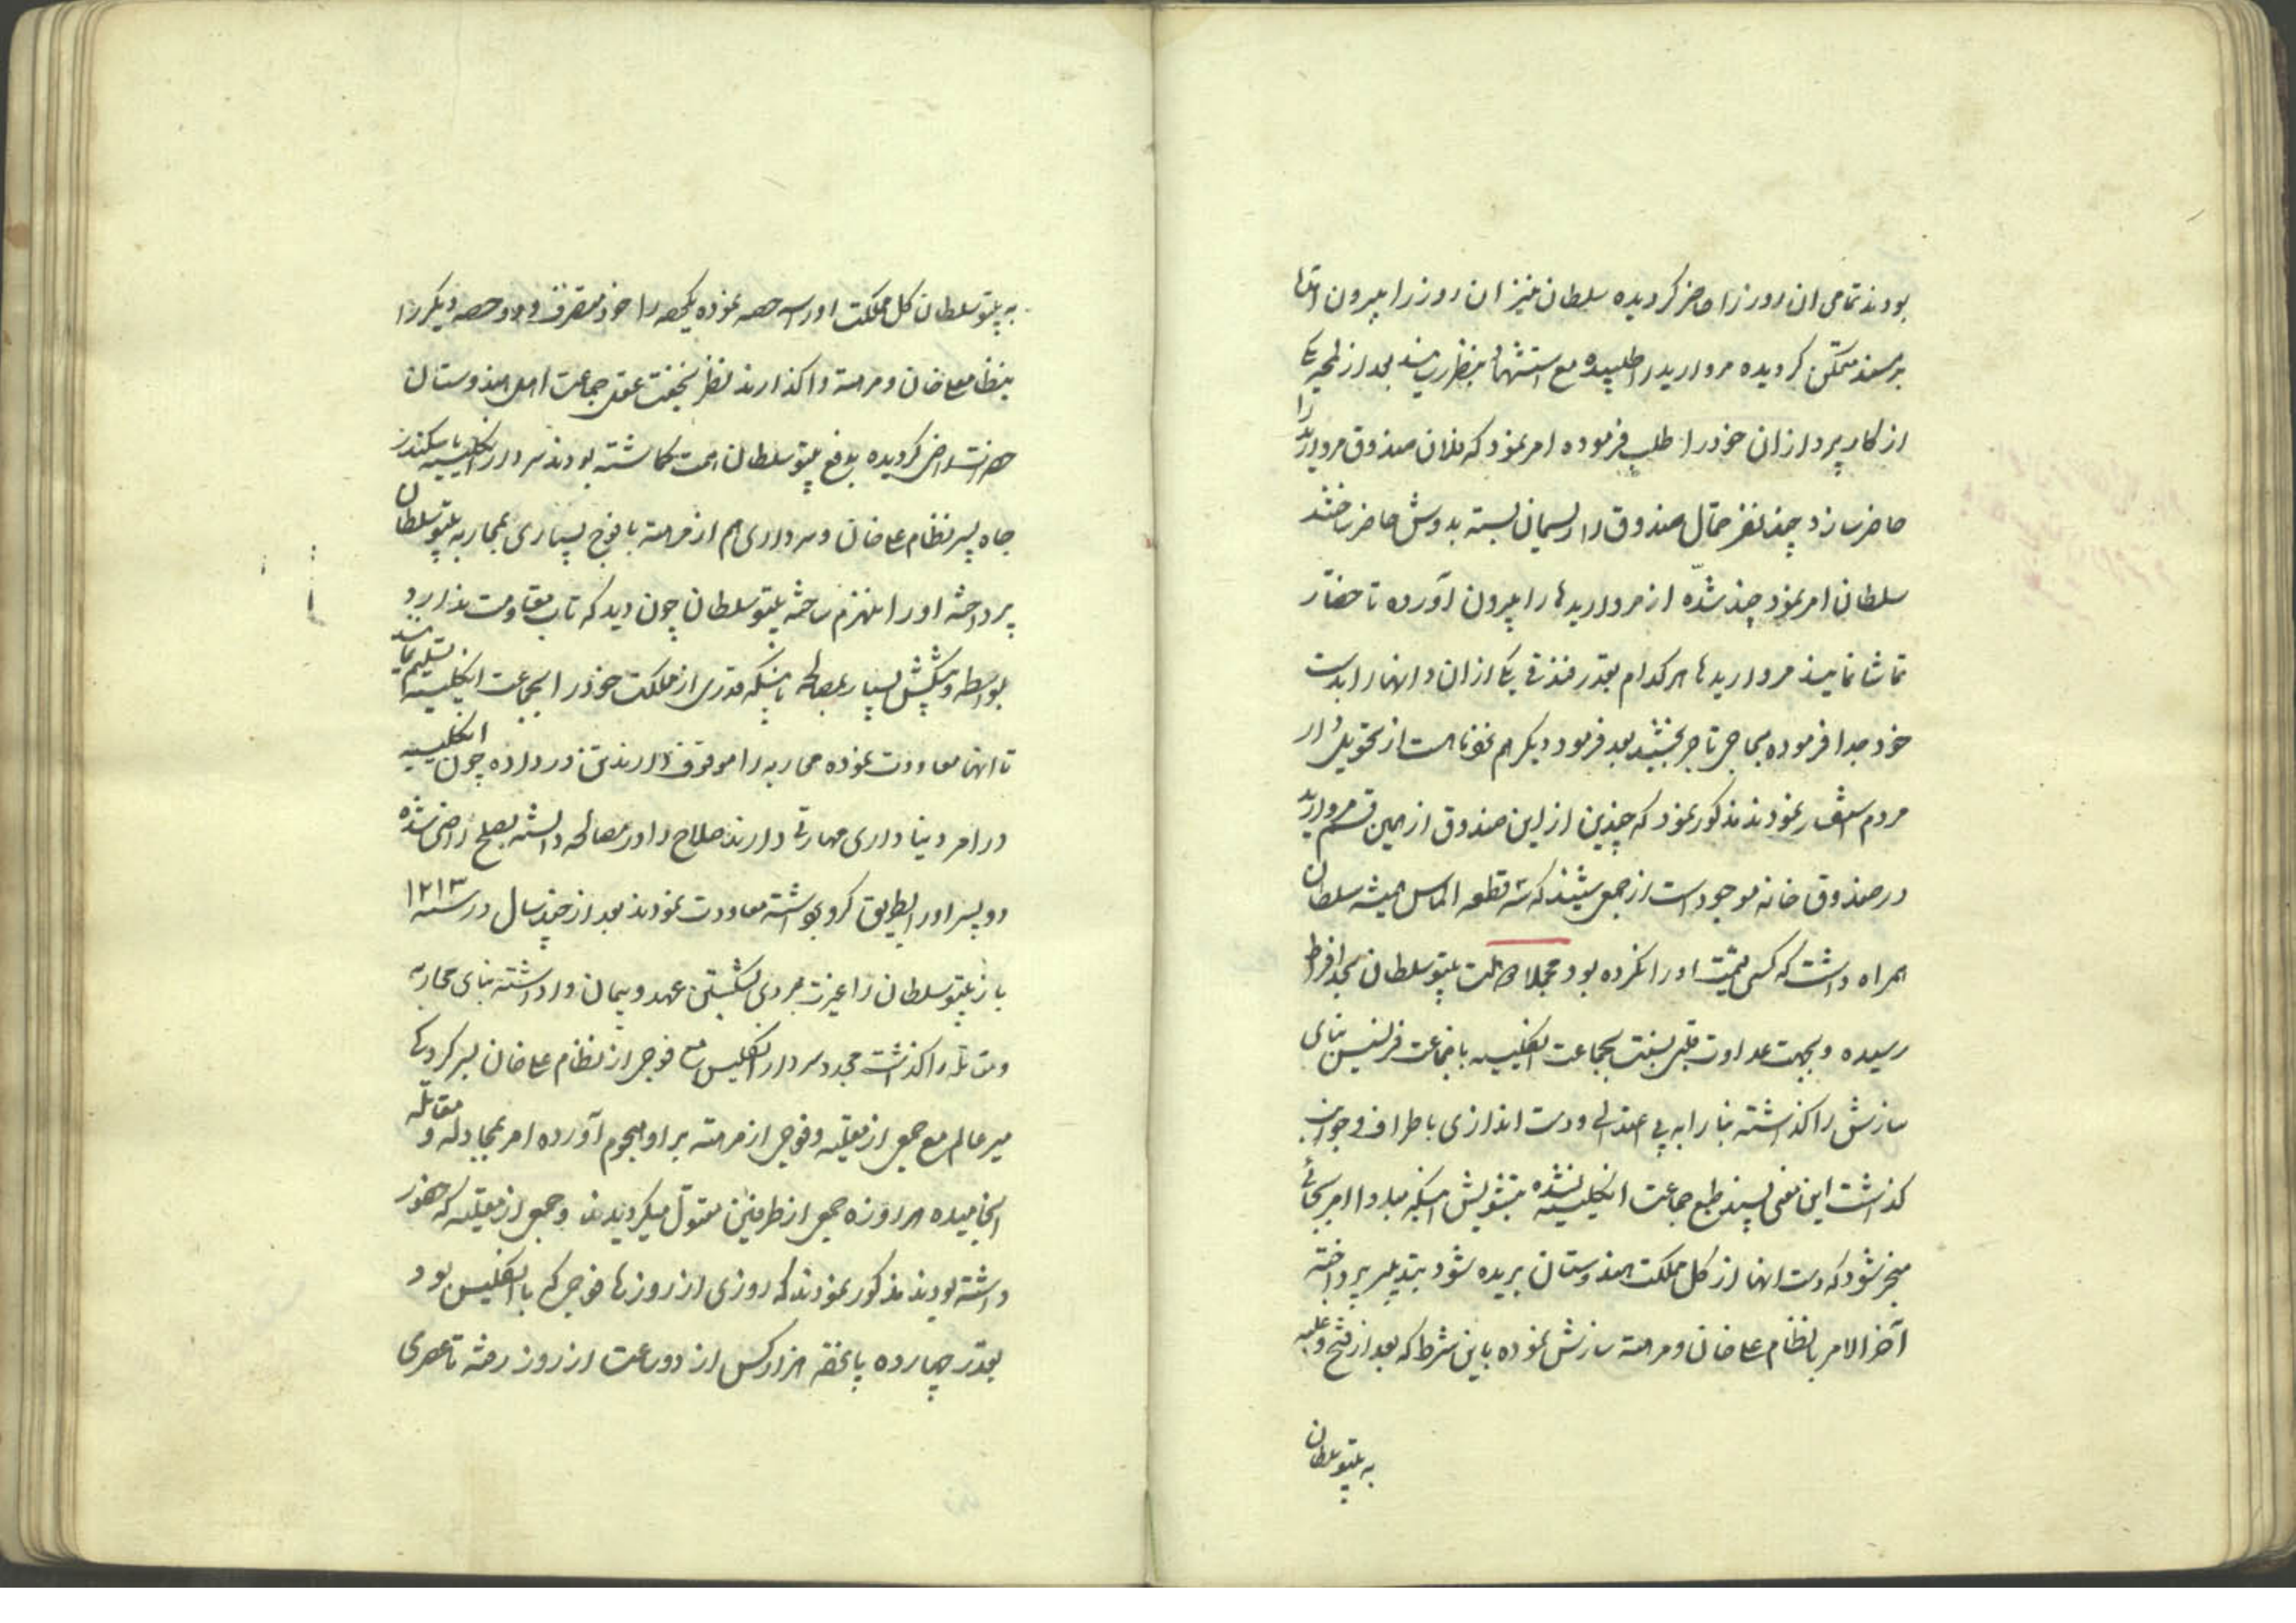 بودند تمامی ان روز را حاضر کردیده سلطان نیز ان روز را بیرون
بر مسند متمکن کردیده مروارید را طلبیده مع بنظر رسید بعد از لمحه یکی
از کار پردازان خود را طلب فرموده امر نمود که فلان صندوق مروارید را
حاضر سازد چند نفر حمال صندوق را ریسمان بسته بدوش حاضر ساختند
سلطان امر نمود چند شدّه از مرواریدها را بیرون آورده تا حضّار
تماشا نمایند مرواریدها هر کدام بقدر فندقی یکی از ان دانهها را بدست
خود جدا فرموده بحاجی تاجر بخشید بعد فرمود دیکر هم نمونه است از تحویل دار
مردم استفسار نمودند مذکور نمود که چندین از این صندوق از همین قسم مروارید
در صندوق خانه موجود است از جمعی شنیدند که سه قطعه الماس همیشه سلطان
همراه داشت که کسی قیمت او را نکرده بود مجملا دولت تیپو سلطان بحد افراط
رسیده و بجهت عداوت قلبی بنسبت بجماعت انکلیسیه با جماعت فرنسیس بنای
سازش را کذاشته بنا را به بی اعتدالی و دست اندازی باطراف و جوانب
کذاشت این معنی پسند طبع جماعت انکلیسیه نشده بتشویش اینکه مبادا امر بجائی
منجر شود که دست انها از کل مملکت هندوستان بریده شود بتدبیر پرداخته
آخر الامر با نظام علی خان و مرهته سازش نموده باین شرط که بعد از فتح و غلبه
به تیپو سلطان
به تیپو سلطان کل مملکت او را سه حصه نموده یکحصه را خود متصرف و دو حصه دیکر را
بنظام علی خان و مرهته واکذارند نظر بخفت عقل جماعت اهل هندوستان
راضی کردیده بدفع تیپو سلطان همت کماشته بودند سردار انکلیسیه با سکندر
جاه پسر نظام علی خان و سرداری هم از مرهته با فوج بسیاری بمحاربه تیپو سلطان
پرداخته او را منهزم ساخته تیپو سلطان چون دید که تاب مقاومت ندارد
بواسطه و پیشکش بسیار بمصالحه باینکه قدری از مملکت خود را بجماعت انکلیسیه تسلیم نماید
تا انها معاودت نموده محاربه را موقوف دارند تن در داده چون انکلیسیه
در امر دنیا داری مهارتی دارند صلاح را در مصالحه دانسته بصلح راضی شده
دو پسر او را بطریق کرو برداشته معاودت نمودند بعد از چند سال در سنه ۱۲۱۳
باز تیپو سلطان را غیرت مردی بشکستن عهد و پیمان واداشته بنای محاربه
و مقاتله را کذاشت مجدد سردار انکلیس مع فوجی از نظام علی خان بسر کردکی
میر عالم مع جمعی از مغلیه و فوجی از مرهته بر او هجوم آورده امر بمجادله و مقاتله
انجامیده هر روزه جمعی از طرفین مقتول میکردیدند و جمعی از مغلیه که حضور
داشته بودند مذکور نمودند که روزی از روزها فوجی که با انکلیس بود
بقدر چهارده پانزده هزار کس از دو ساعت از روز رفته تا عصری